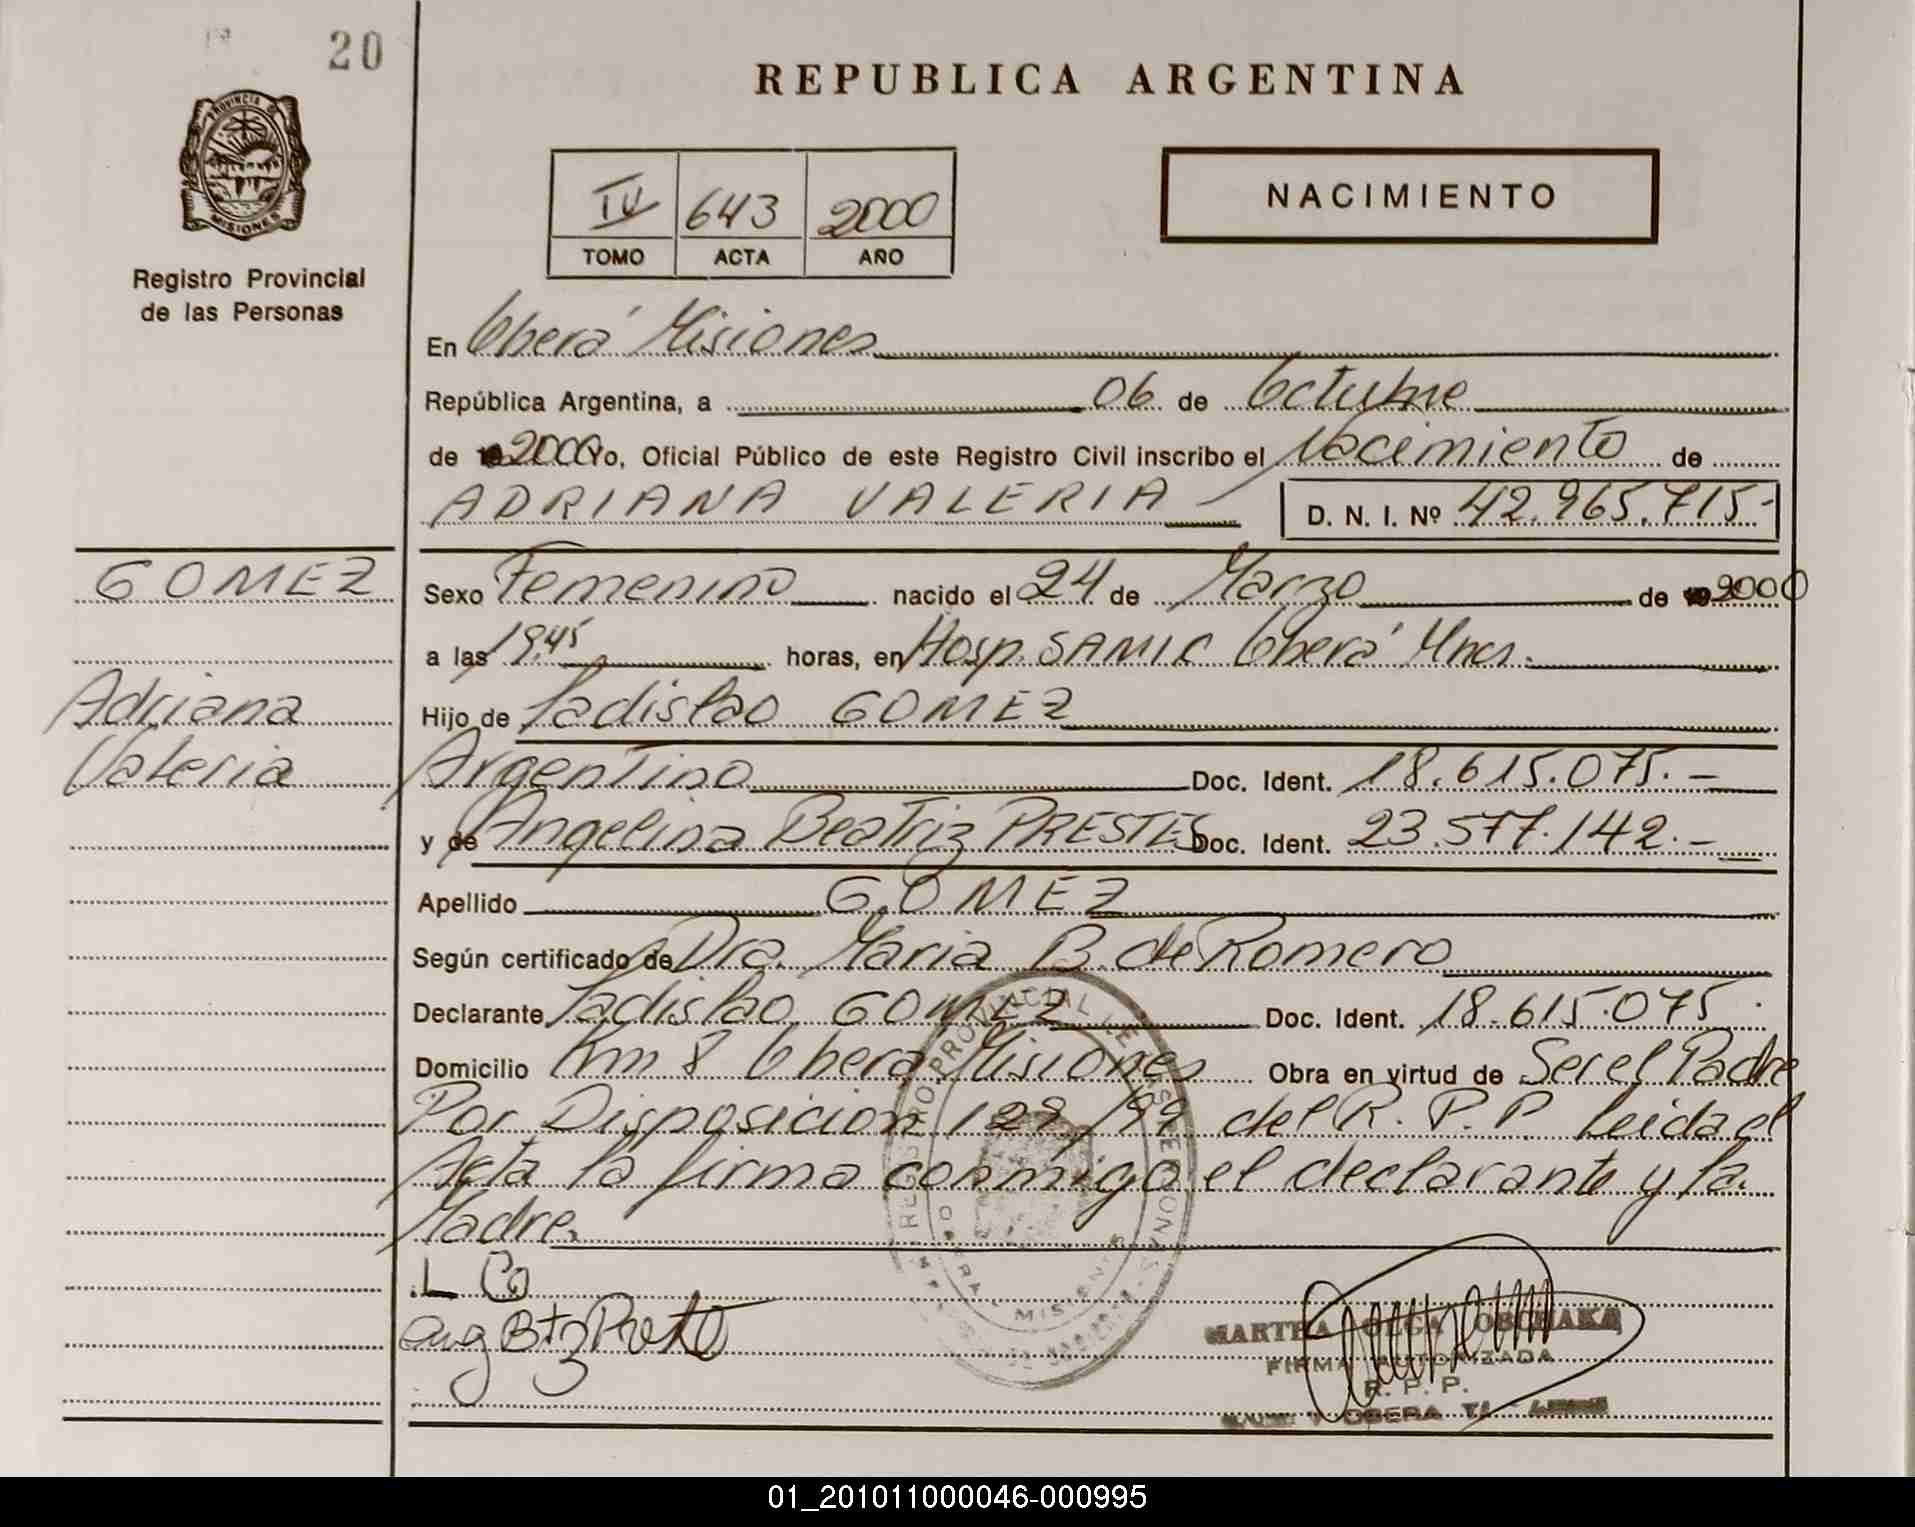 20
REPUBLICA ARGENTINA
PROVINCIA D
MISIONES
Registro Provincial
de las Personas
IV 643 2000
TOMO ACTA AÑO
NACIMIENTO
En Oberá Misiones
República Argentina, a 06 de Octubre
de 2000 Yo, Oficial Público de este Registro Civil inscribo el Nacimiento de
ADRIANA VALERIA D. N. I. Nº 42.965.715.-
GOMEZ
Sexo Femenino nacido el 24 de Marzo de 2000
a las 19,45 horas, en Hosp. SAMIC Oberá Mnes.
Adriana
Hijo de Ladislao GOMEZ
Valeria
Argentino Doc. Ident. 18.615.075.-
y de Angelina Beatriz PRESTES Doc. Ident. 23.577.142.-
Apellido GOMEZ
Según certificado de Dra. Maria B. de Romero
Declarante Ladislao GOMEZ Doc. Ident. 18.615.075.
Domicilio Km 8 Oberá Misiones Obra en virtud de Ser el Padre
Por Disposicion 129/99 del R.P.P. Leida el
Acta la firma conmigo el declarante y la
Madre.
L
MARTHA OLGA
FIRMA AUTORIZADA
R. P. P.
OBERA
01_201011000046-000995